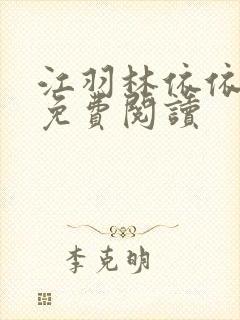 江羽林依依
免費閱讀
李克明